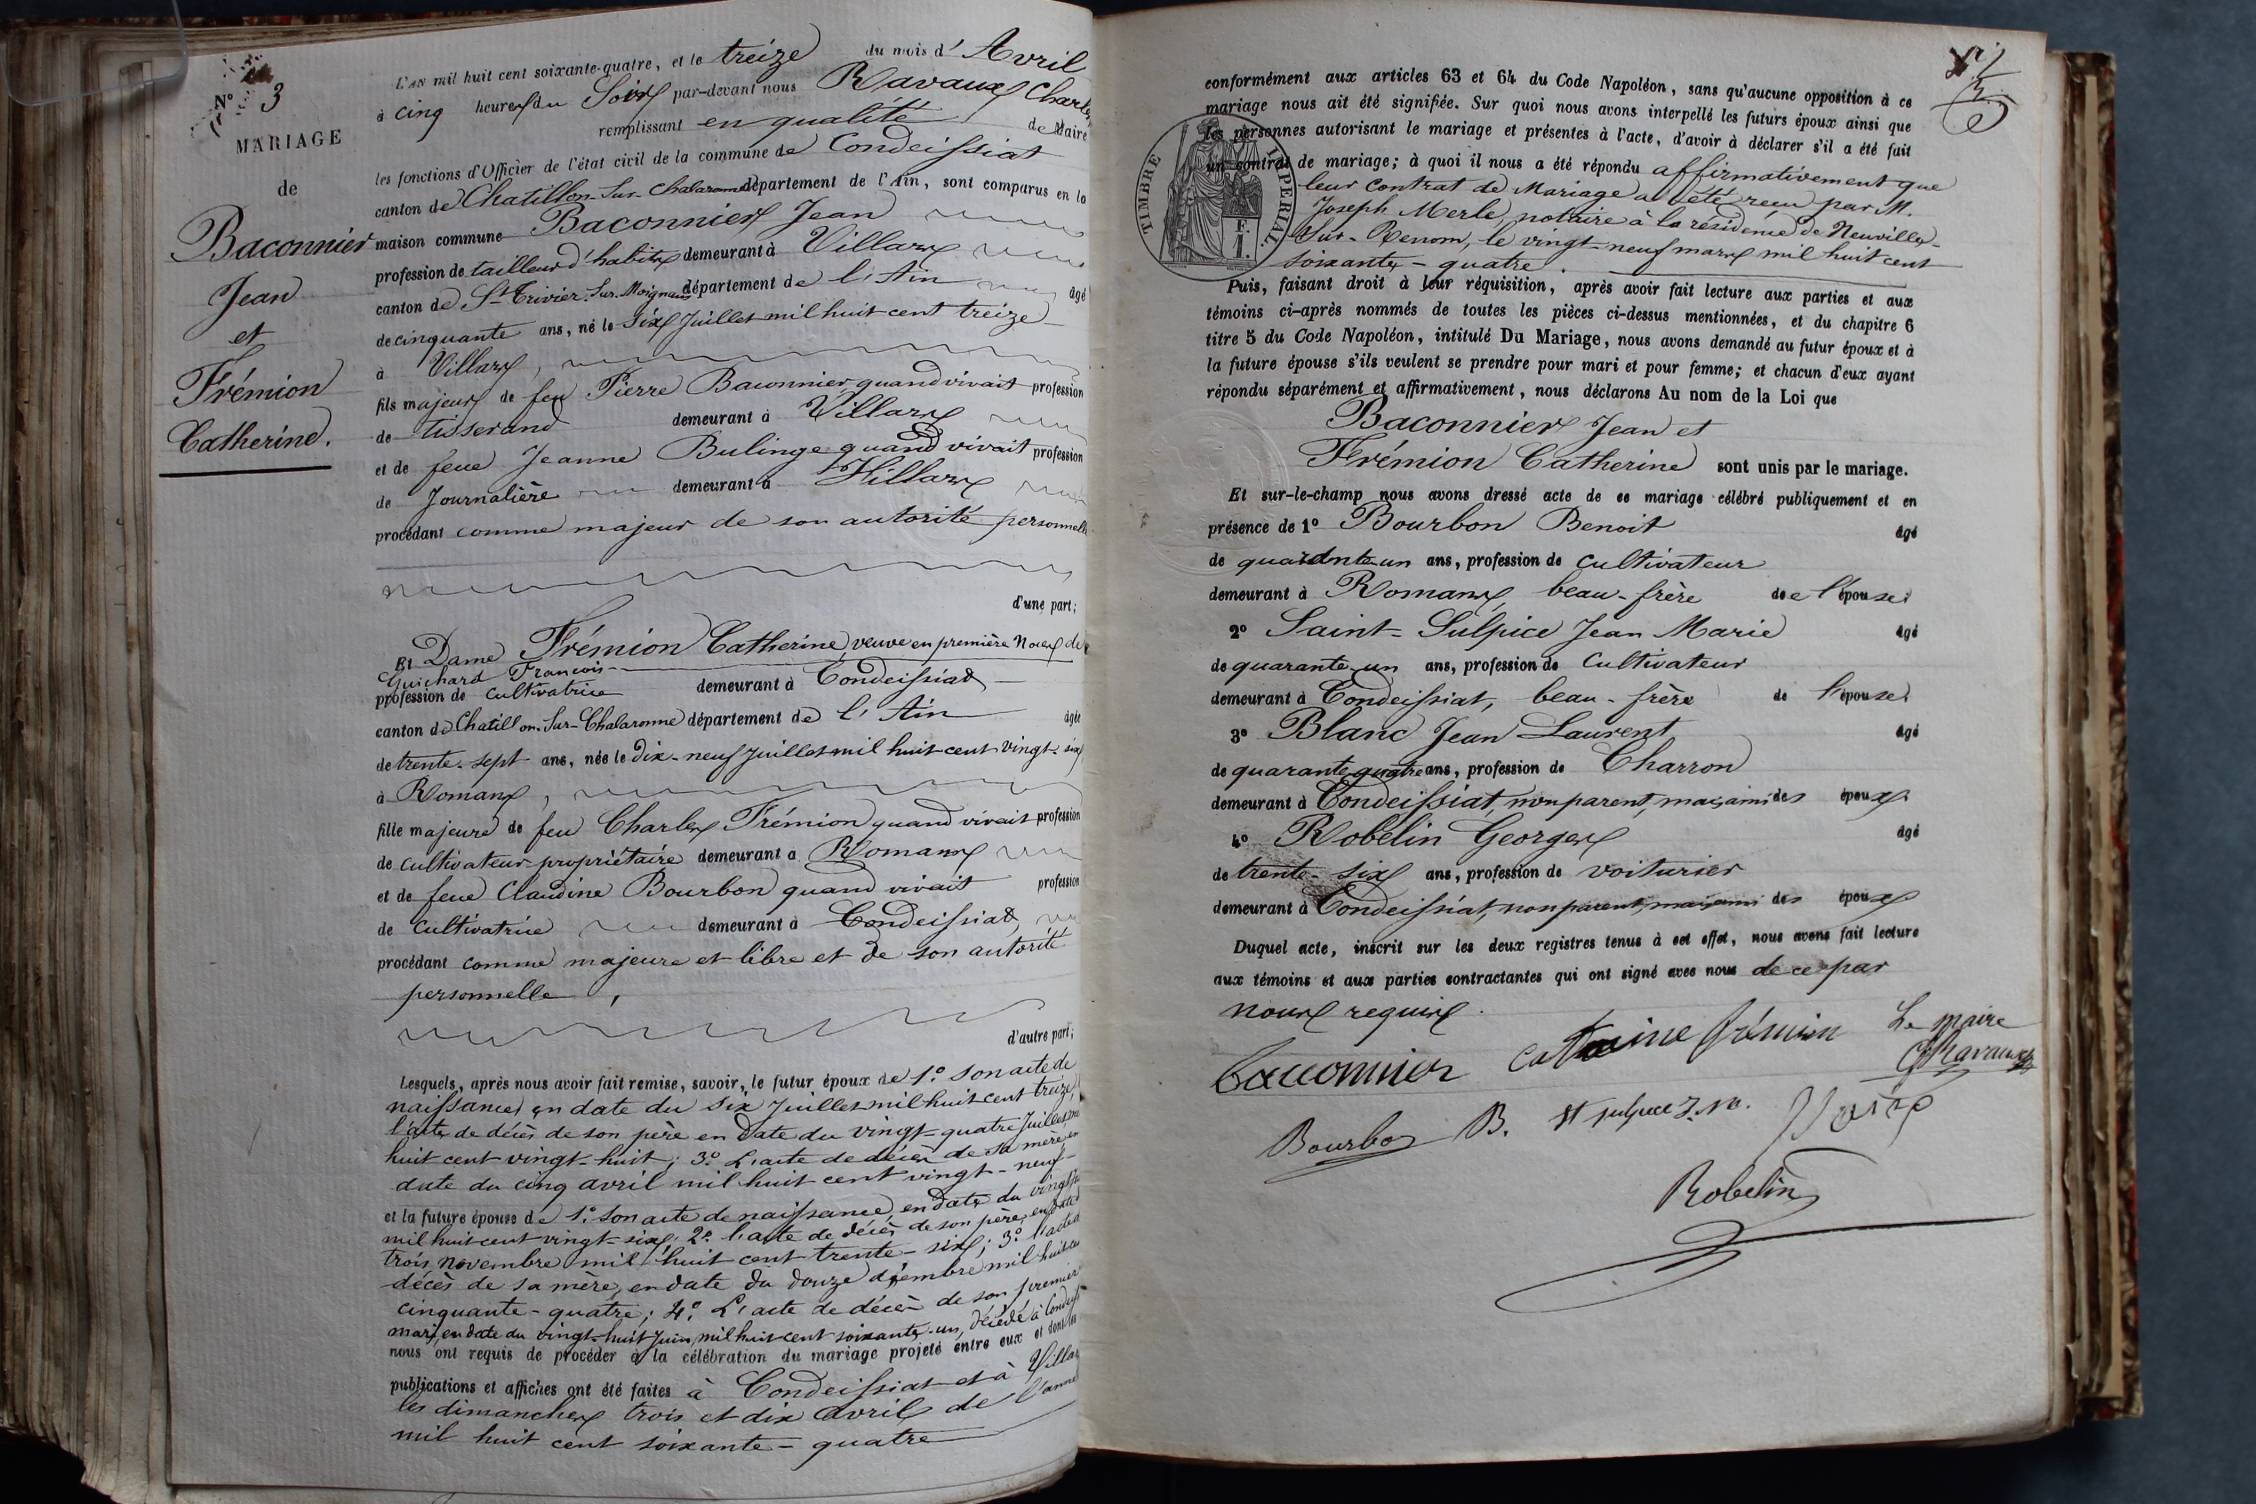 N° 3
MARIAGE
de
Baconnier
Jean
et
Frémion
Catherine.
L'AN mil huit cent soixante-quatre, et le treize du mois d'Avril
à cinq heures du Soir par-devant nous Ravaux Charles
remplissant en qualité de Maire
les fonctions d'Officier de l'état civil de la commune de Condeissiat
canton de Chatillon-Sur-Chalaronne département de l'Ain, sont comparus en la
maison commune Baconnier Jean
profession de tailleur d'habits demeurant à Villars
canton de St Trivier-Sur-Moignans département de l'Ain âgé
de cinquante ans, né le six Juillet mil huit cent treize
à Villars,
fils majeur de feu Pierre Baconnier, quand vivait profession
de tisserand demeurant à Villars
et de feue Jeanne Bulinge quand vivait profession
de Journalière demeurant à Villars
procédant comme majeur de son autorité personnelle
d'une part;
Et Dame Frémion Catherine, veuve en première Noces de
Guichard François
profession de cultivatrice demeurant à Condeissiat
canton de Chatillon-Sur-Chalaronne département de l'Ain âgée
de trente-sept ans, née le Dix-neuf Juillet mil huit cent vingt-six
à Romans,
fille majeure de feu Charles Frémion quand vivait profession
de cultivateur propriétaire demeurant à Romans
et de feue Claudine Bourbon quand vivait profession
de cultivatrice demeurant à Condeissiat,
procédant comme majeure et libre et de son autorité
personnelle,
d'autre part;
Lesquels, après nous avoir fait remise, savoir, le futur époux de 1.° son acte de
naissance, en date du six Juillet mil huit cent treize,
l'acte de décès de son père en date du vingt-quatre Juillet mil
huit cent vingt-huit; 3.° L'acte de décès de sa mère, en
date du cinq avril mil huit cent vingt-neuf
et la future épouse de 1.° Son acte de naissance, en date du vingt
mil huit cent vingt-six; 2.° l'acte de décès de son père, en date
trois novembre mil huit cent trente-six; 3.° l'acte
décès de sa mère, en date du douze décembre mil huit
cinquante-quatre; 4.° L'acte de décès de son premier
mari, en date du vingt-huit Juin mil huit cent soixante-un, décédé à
nous ont requis de procéder à la célébration du mariage projeté entre eux et dont les
publications et affiches ont été faites à Condeissiat et à Villars
les dimanches trois et dix avril de l'année
mil huit cent soixante-quatre
conformément aux articles 63 et 64 du Code Napoléon, sans qu'aucune opposition à ce
mariage nous ait été signifiée. Sur quoi nous avons interpellé les futurs époux ainsi que
les personnes autorisant le mariage et présentes à l'acte, d'avoir à déclarer s'il a été fait
un contrat de mariage; à quoi il nous a été répondu affirmativement que
leur contrat de Mariage a été reçu par M.
Joseph Merle, notaire à la résidence de Neuville-
Sur-Renom, le vingt-neuf mars mil huit cent
soixante-quatre.
TIMBRE IMPERIAL
F.
1.
Puis, faisant droit à leur réquisition, après avoir fait lecture aux parties et aux
témoins ci-après nommés de toutes les pièces ci-dessus mentionnées, et du chapitre 6
titre 5 du Code Napoléon, intitulé Du Mariage, nous avons demandé au futur époux et à
la future épouse s'ils veulent se prendre pour mari et pour femme; et chacun d'eux ayant
répondu séparément et affirmativement, nous déclarons Au nom de la Loi que
Baconnier Jean et
Frémion Catherine sont unis par le mariage.
Et sur-le-champ nous avons dressé acte de ce mariage célébré publiquement et en
présence de 1° Bourbon Benoit âgé
de quarante-un ans, profession de cultivateur
demeurant à Romans, beau-frère de l'épouse.
2° Saint-Sulpice Jean Marie âgé
de quarante-un ans, profession de cultivateur
demeurant à Condeissiat, beau-frère de l'épouse.
3° Blanc Jean Laurent âgé
de quarante quatre ans, profession de Charron
demeurant à Condeissiat, non parent, mais ami des époux
4° Robelin Georges âgé
de trente-six ans, profession de voiturier
demeurant à Condeissiat, non parent, mais ami des époux
Duquel acte, inscrit sur les deux registres tenus à cet effet, nous avons fait lecture
aux témoins et aux parties contractantes qui ont signé avec nous de ce par
nous requis.
Baconnier Catherine frémion Le maire
Ch Ravaux
Bourbon B. St sulpice J. M.
Robelin